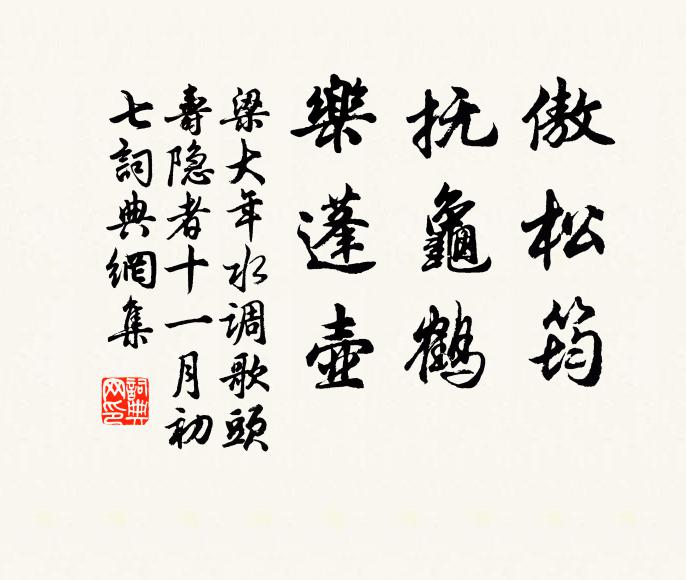 傲松筠
抚龜鶴
樂蓬壺
梁大年水调歌頭
壽隐者十一月初
七詞典網集
詞典网印